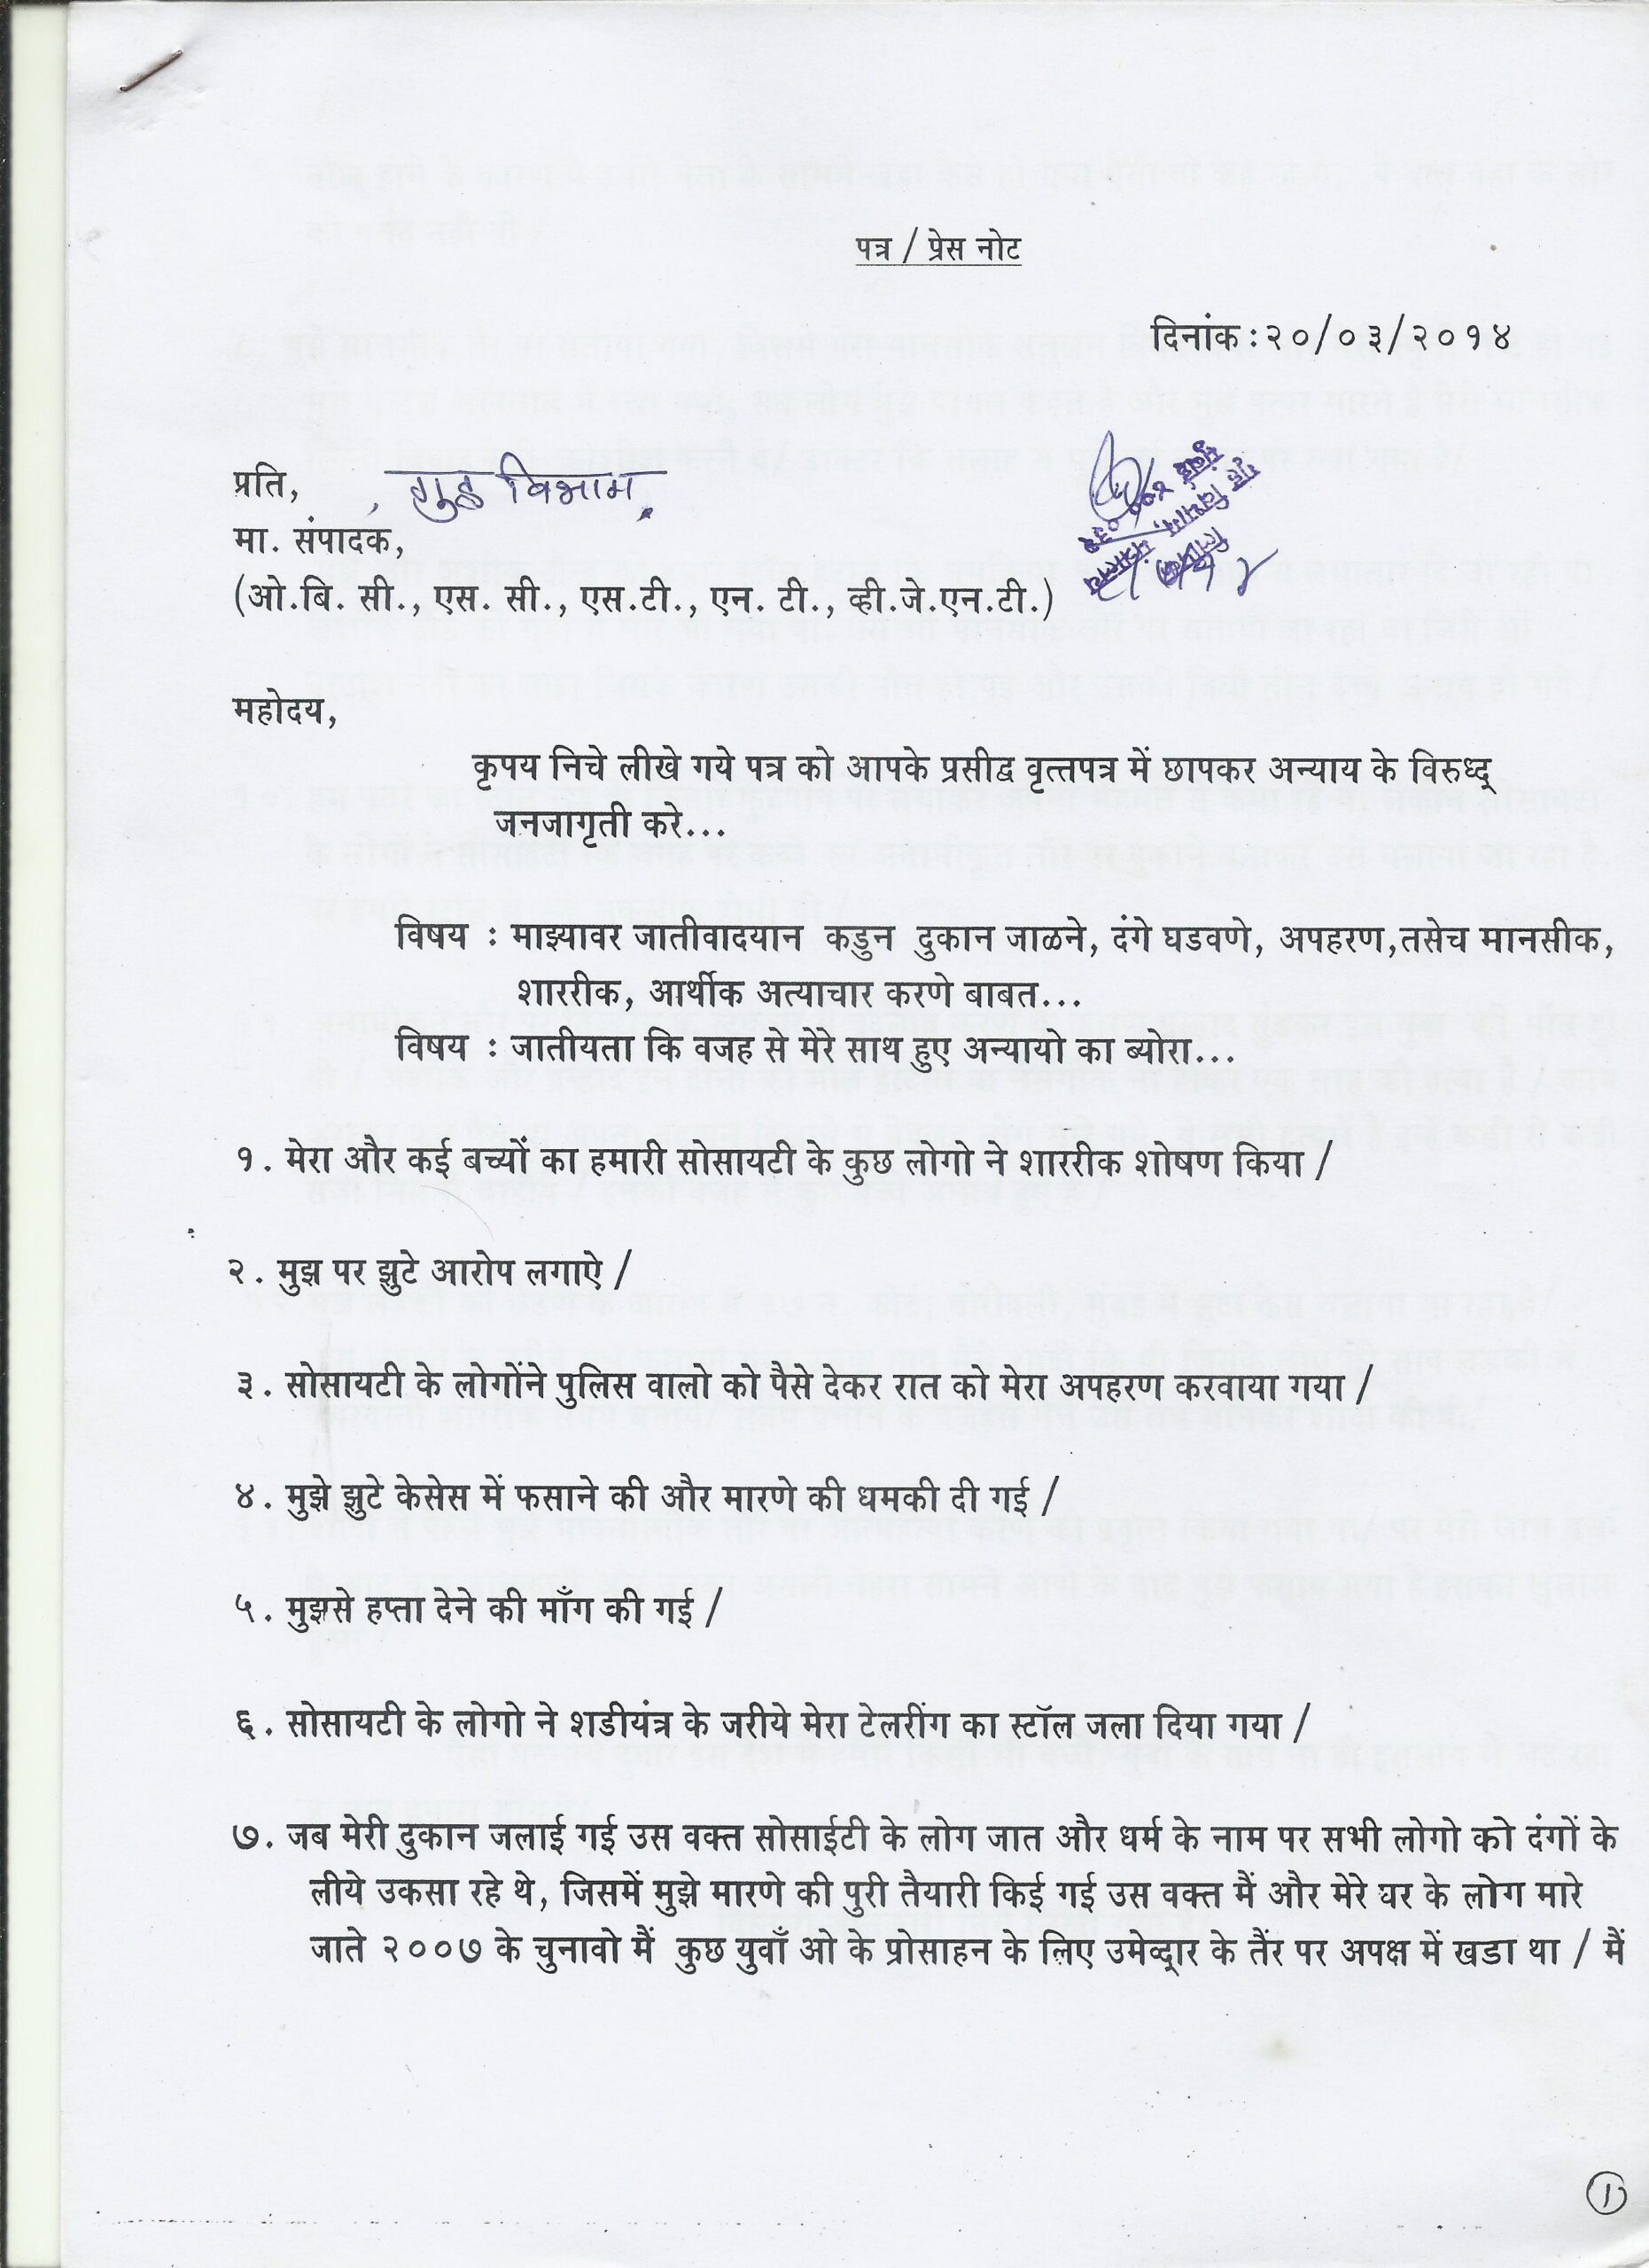 पत्र / प्रेस नोट
दिनांक : २०/०३/२०१४
प्रति, गृह विभाग,
मा. संपादक,
(ओ.बि. सी., एस. सी., एस.टी., एन. टी., व्ही.जे.एन.टी.)
महोदय,
कृपय निचे लीखे गये पत्र को आपके प्रसीद्व वृत्तपत्र में छापकर अन्याय के विरुध्द्
जनजागृती करे...
विषय : माझ्यावर जातीवादयान कडुन दुकान जाळने, दंगे घडवणे, अपहरण,तसेच मानसीक,
शाररीक, आर्थीक अत्याचार करणे बाबत...
विषय : जातीयता कि वजह से मेरे साथ हुए अन्यायो का ब्योरा...
१. मेरा और कई बच्यों का हमारी सोसायटी के कुछ लोगो ने शाररीक शोषण किया /
२. मुझ पर झुटे आरोप लगाऐ /
३. सोसायटी के लोगोंने पुलिस वालो को पैसे देकर रात को मेरा अपहरण करवाया गया /
४. मुझे झुटे केसेस में फसाने की और मारणे की धमकी दी गई /
५. मुझसे हप्ता देने की माँग की गई /
६. सोसायटी के लोगो ने शडीयंत्र के जरीये मेरा टेलरींग का स्टॉल जला दिया गया /
७. जब मेरी दुकान जलाई गई उस वक्त सोसाईटी के लोग जात और धर्म के नाम पर सभी लोगो को दंगों के
लीये उकसा रहे थे, जिसमें मुझे मारणे की पुरी तैयारी किई गई उस वक्त मैं और मेरे घर के लोग मारे
जाते २००७ के चुनावो मैं कुछ युवाँ ओ के प्रोसाहन के लिए उमेव्द्वार के तैंर पर अपक्ष में खडा था / मैं
1